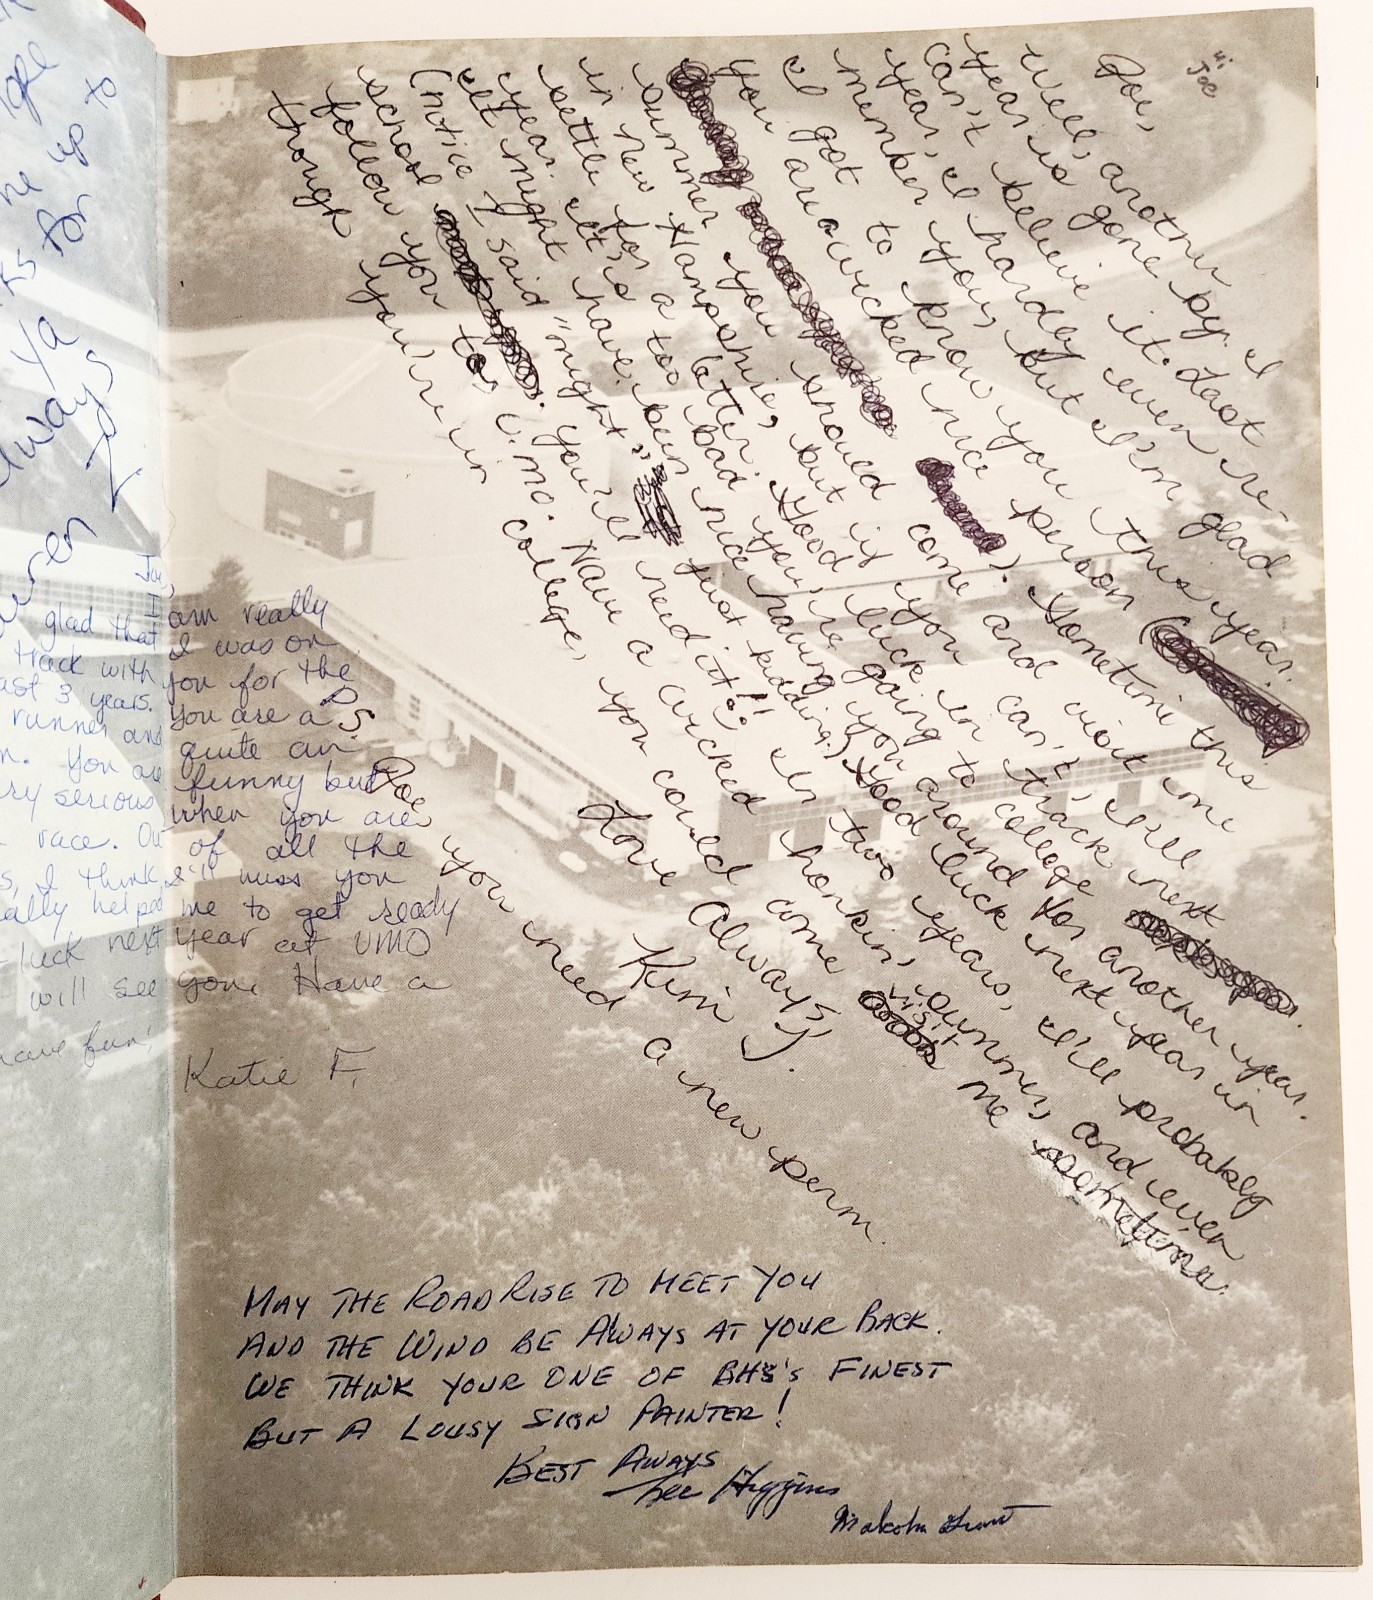 Hi
Joe
Joe,
Well, another
year is gone by. I
can't believe it. Last
year, I hardly even re-
member you, but I'm glad
I got to know you this year.
You are a wicked nice person (
). Sometime this
summer you should come and visit me
in New Hampshire, but if you can't, I'll
settle for a letter. Good luck in track next
year. It's too bad you're going to college
It might have been nice having you around for another year.
(notice I said "might", just kidding.) Good luck next year in
school. You'll need it!! In two years, I'll probably
follow you to U.M.O. Have a wicked honkin' summer, and even
though you're in college, you could come visit me sometime.
Love Always,
Kim J.
P.S.
Joe you need a new perm.
ne up to
for
ya
always
Joe,
I am really
glad that I was on
track with you for the
ast 3 years. You are a
runner and quite an
n. You are funny but
ry serious when you are
race. Out of all the
s, I think I'll miss you
ally helped me to get ready
luck next year at UMO
will see you. Have a
have fun!
Katie F.
MAY THE ROAD RISE TO MEET YOU
AND THE WIND BE ALWAYS AT YOUR BACK.
WE THINK YOUR ONE OF BHS'S FINEST
BUT A LOUSY SIGN PAINTER!
BEST AWAYS
Lee Higgins
Malcolm Grant